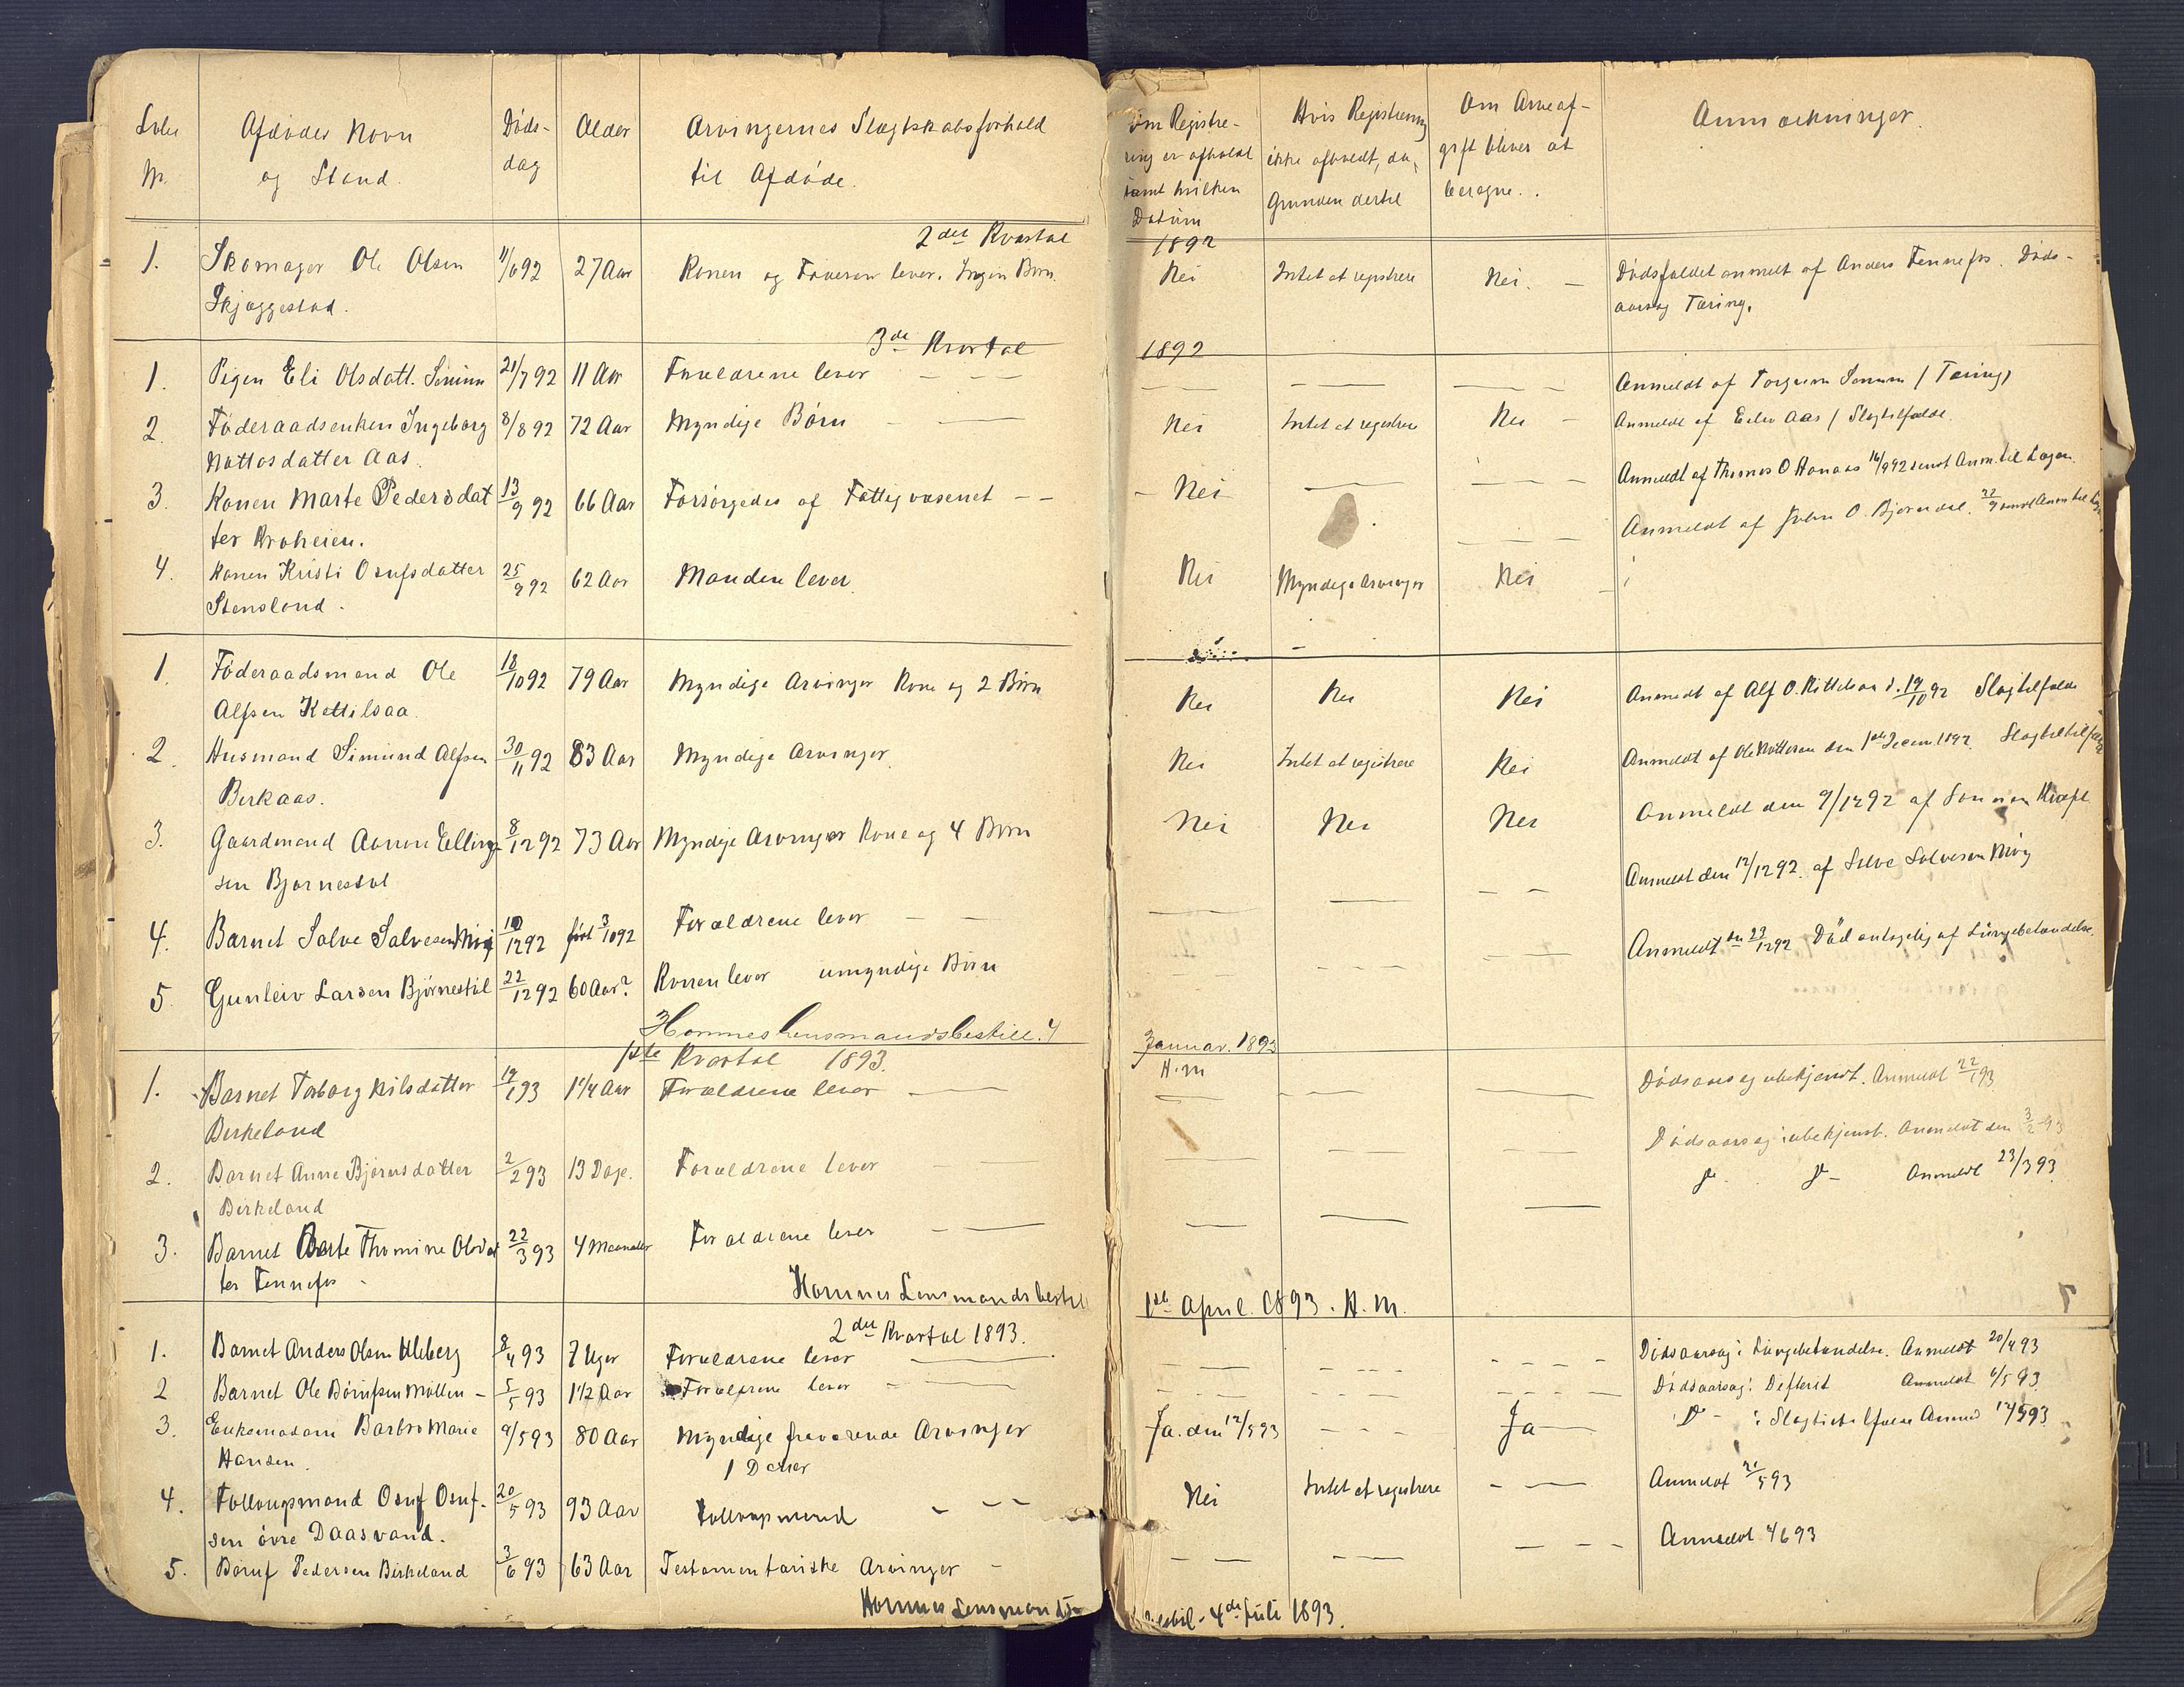 Løbe Afdødes Navn Døds- Alder Arvingernes Slægtskabsforhold
Nr. og Stand. dag til Afdøde.
2det Kvartal
1. Skomager Ole Olsen 11/6 92 27 Aar Konen og Faderen lever. Ingen Børn.
Skjæggestad.
3de Kvartal
1. Pigen Eli Olsdatt. 21/7 92 11 Aar Forældrene lever — — —
2. Føderaadsenken Ingeborg 8/8 92 72 Aar Myndige Børn — ——
datter Aas.
3. Konen Marte Pedersdat 13/9 92 66 Aar Forsørgedes af Fattigvæsenet — —
ter Kroheien.
4. Konen Kristi Osufsdatter 25/9 92 62 Aar Manden lever.
Stensland.
1. Føderaadsmand Ole 18/10 92 79 Aar Myndige Arvinger Kone og 2 Børn
Alfsen Kettilsaa.
2. Husmand Simund Alfsen 30/11 92 83 Aar Myndige Arvinger.
Birkaas.
3. Gaardmand Aanon Ellings 8/12 92 73 Aar Myndige Arvinger Kone og 4 Børn
sen Bjørnestøl
4. Barnet Salve Salvesen 10/12 92 født 3/10 92 Forældrene lever — —
5. Gunleiv Larsen Bjørnestøl 22/12 92 60 Aar? Konen lever umyndige Børn
Hornnes Lensmandsbestill. 4
1ste Kvartal 1893.
1. Barnet Torborg Nilsdatter 19/1 93 1 1/4 Aar Forældrene lever — ——
Birkeland
2. Barnet Anne Bjørnsdatter 2/2 93 13 Dage. Forældrene lever — ——
Birkeland
3. Barnet Thomine Olsdat 22/3 93 4 Maaneder Forældrene lever — ——
ter Fennefos —
Hornnes Lensmandsbestil
2det Kvartal 1893.
1. Barnet Anders Olsen Uleberg 8/4 93 7 Uger Forældrene lever ——
2 Barnet Ole 5/5 93 1 1/2 Aar Forældrene lever — ——
3. Enkemadam Barbro Marie 9/5 93 80 Aar Myndige fraværende Arvinger
Hansen. 1 Datter
4. Fallougsmand Osuf Osuf- 20/5 93 93 Aar — — —
sen øvre Daasvand.
5. Børuf Pedersen Birkeland 3/6 93 63 Aar Testamentariske Arvinger —
Hornnes Lensmands-
Om Registre- Hvis Registrering Om Arveaf- Anmærkninger.
ring er afholdt ikke afholdt, da, gift bliver at
samt hvilken Grunden dertil beregne.
Datum
1892
Nei Intet at registrere Nei. — Dødsfaldet anmeldt af Anders Fennefos. Døds-
aarsag Tæring.
1892
— — — — Anmeldt af (Tæring)
Nei Intet at registrere Nei — Anmeldt af Eilev Aas / Slagtilfælde.
— Nei —— — — — Anmeldt af Thomas O 16/9 92 Anm. til Lagen.
— — — Anmeldt af John O. Bjørndal. 22/9
Nei Myndige Arvinger Nei
Nei Nei Nei Anmeldt af Alf O. Kittelsaa d. 19/10 92 Slagtilfælde
Nei Intet at registrere Nei Anmeldt af Ole den 1ste Decem. 1892.
Nei Nei Nei Anmeldt den 9/12 92 af Sønnen
—— —— — — Anmeldt den 12/12 92. af Salve Salvesen
— — — — — Anmeldt den 23/12 92 Død antagelig af Lungebetændelse.
Januar. 1893
H. m
— — —— Dødsaarsag ubekjendt. Anmeldt 22/1 93
—— — — Dødsaarsag: ubekjendt. Anmeldt den 3/2 93
—— —— —— Do — Do — Anmeldt 23/3 93
1ste April. 1893. H. M.
—— — — — — — — Dødsaarsag: Lungebetændelse. Anmeldt 20/4 93
— — — — — — — Dødsaarsag: Difterit Anmeldt 6/5 93
Ja. den 12/5 93 — — — Ja —— Do — : Anmeldt 12/5 93
Nei Intet at registrere — —— Anmeldt 21/5 93
— — — —— — — — Anmeldt 4/6 93
4de Juli 1893.